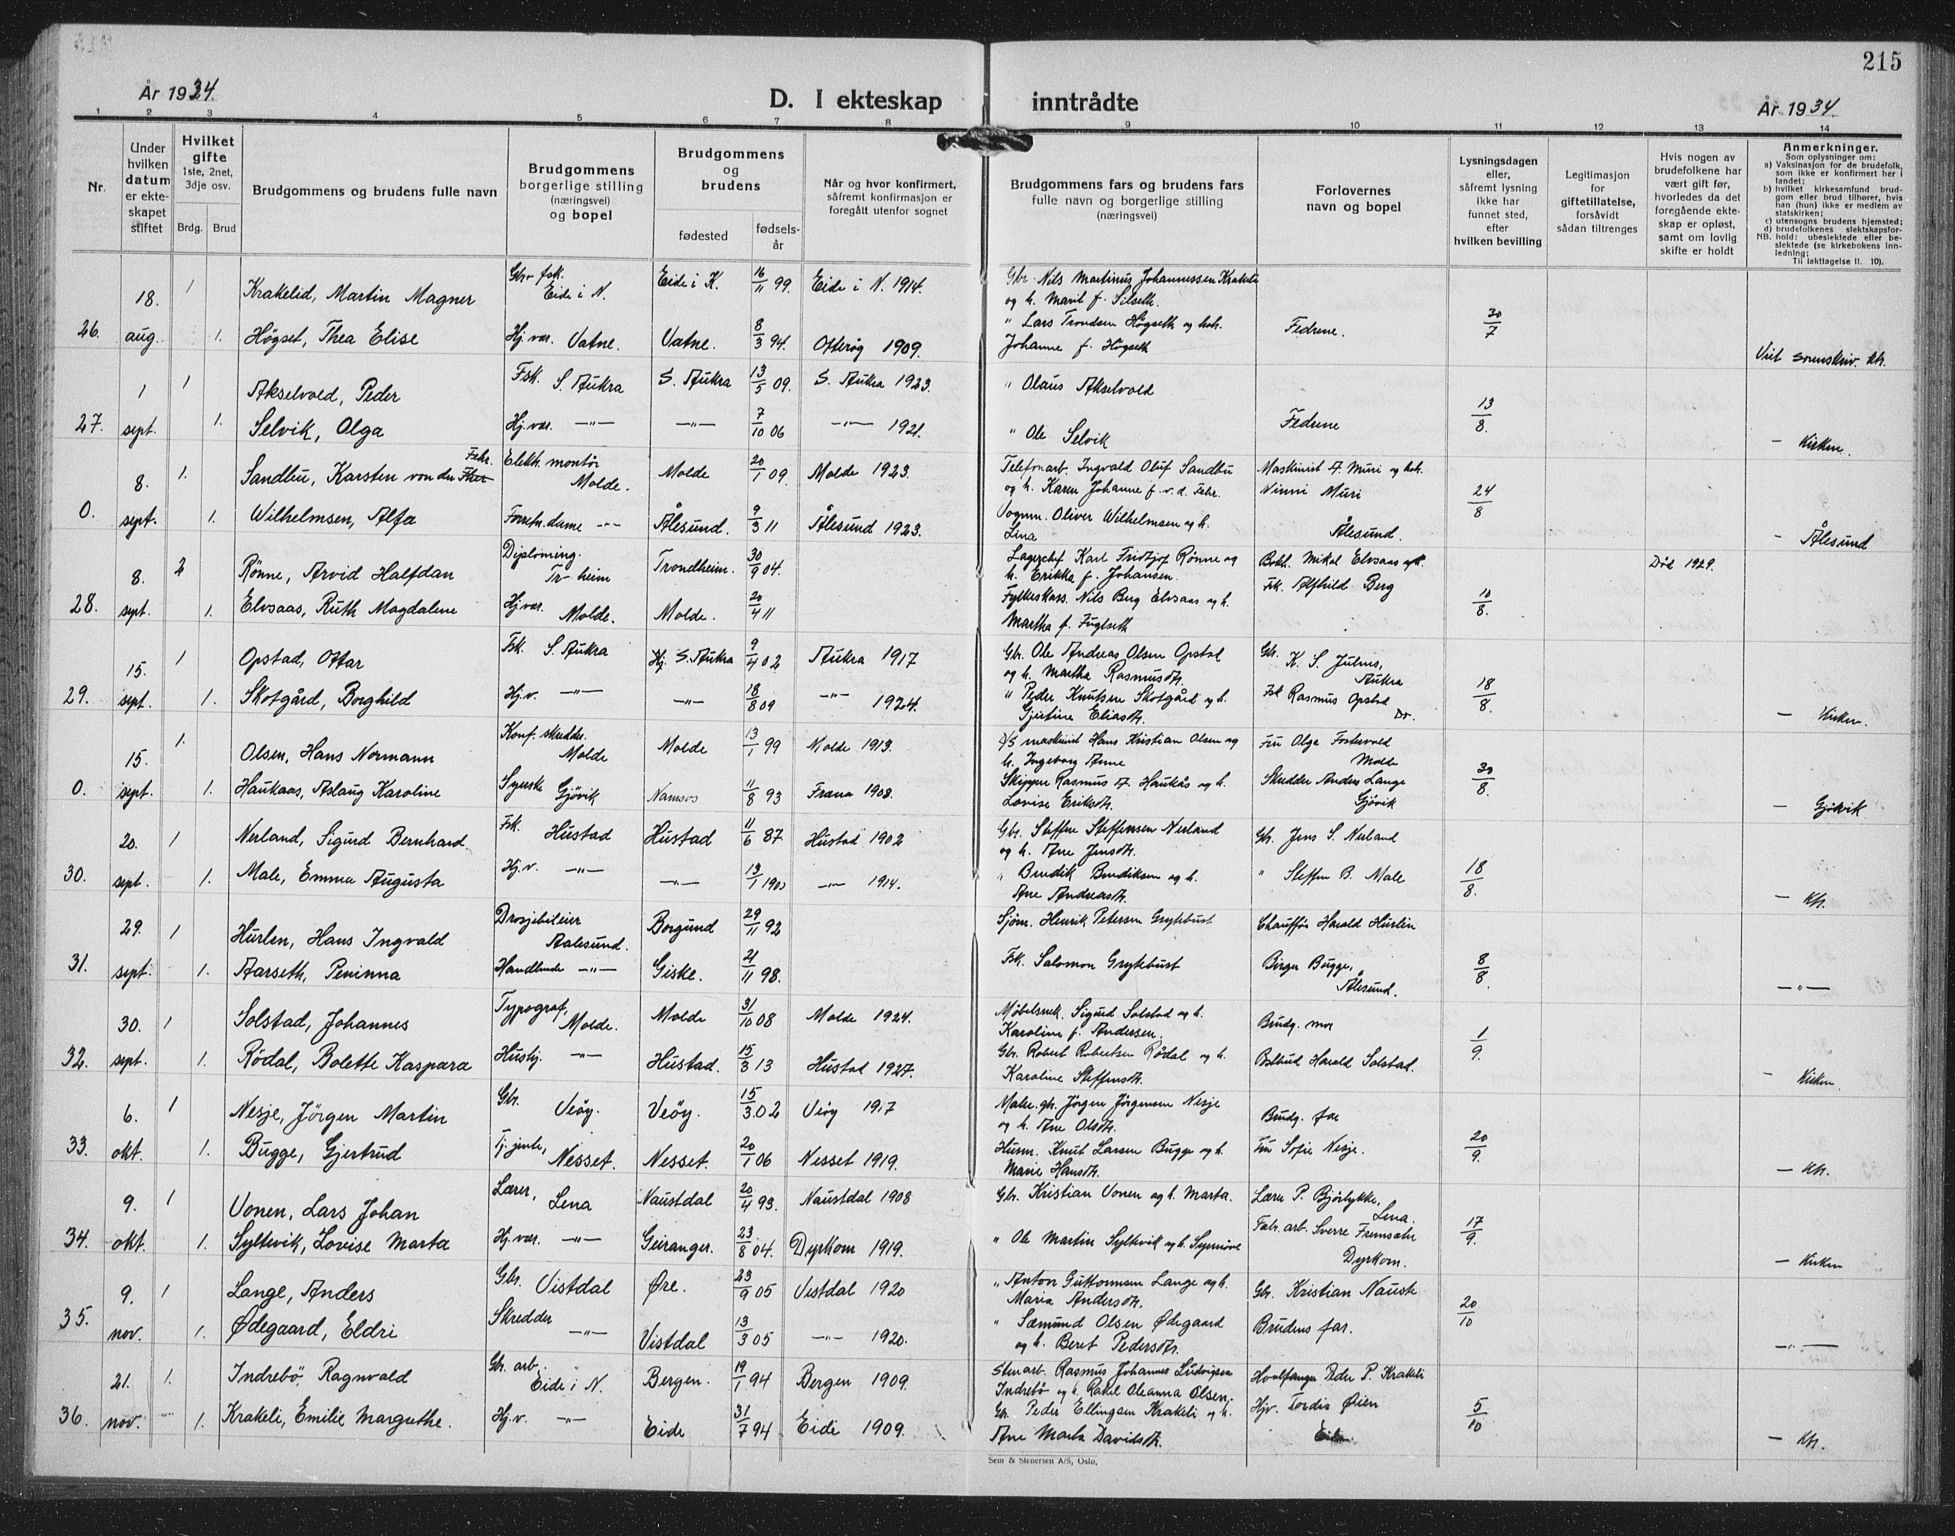 215
År 1934.
D. I ekteskap inntrådte
År 1934.
1 2 3 4 5 6 7 8 9 10 11 12 13 14
Nr.
Under hvilken datum er ekteskapet stiftet
Hvilket gifte 1ste, 2net, 3dje osv.
Brdg. Brud
Brudgommens og brudens fulle navn
Brudgommens borgerlige stilling (næringsvei) og bopel
Brudgommens og brudens
fødested
fødselsår
Når og hvor konfirmert, såfremt konfirmasjon er foregått utenfor sognet
Brudgommens fars og brudens fars fulle navn og borgerlige stilling (næringsvei)
Forlovernes navn og bopel
Lysningsdagen eller, såfremt lysning ikke har funnet sted, efter hvilken bevilling
Legitimasjon for giftetillatelse, forsåvidt sådan tiltrenges
Hvis nogen av brudefolkene har vært gift før, hvorledes da det foregående ekteskap er opløst, samt om lovlig skifte er holdt
Anmerkninger.
Som oplysninger om:
a) Vaksinasjon for de brudefolk, som ikke er konfirmert her i landet;
b) hvilket kirkesamfund brudgom eller brud tilhører, hvis han (hun) ikke er medlem av statskirken;
c) utensogns brudens hjemsted;
d) brudefolkenes slektskapsforhold: ubeslektede eller beslektede (se kirkebokens innledning;
NB.
Til iakttagelse ll. 10).
18. 1 Krakelid, Martin Magner Gbr. fsk. Eide i N. Eide i K. 16/11 99 Eide i N. 1914. Gbr. Nils Martinus Johannessen Krakeli
og h. Marit f. Silseth.
26. aug. 1. Høgset, Thea Elise Hj. vær. Vatne. Vatne. 8/3 94. Otterøy 1909. " Lars Trondsen Høgseth og h. Fedrene. 30/7
Johanne f. Høgseth
1 1 Akselvold, Peder Fsk. S. Aukra S. Aukra 13/5 09. S. Aukra 1923. " Olaus Akselvold
27. sept. 1. Selvik, Olga Hj. vær. —"— —"— 7/10 06 —"— 1921. " Ole Selvik Fedrene 13/8. - Kirken.
8. 1. Sandbu, Karsten von der Fehr. Elektr. montør Molde. Molde 20/1 09. Molde 1923. Telefonarb. Ingvald Oluf Sandbu Maskinist A. Muri og
og h. Karen Johanne f. v. d. Fehr. Ninni Muri
0. sept. 1. Wilhelmsen, Alfa Forretn. dame —"— Ålesund. 9/3 11 Ålesund 1923. Vognm. Oliver Wilhelmsen og h. Ålesund. 24/8
Lina - Ålesund
8. 2 Rønne, Arvid Halfdan Diploming. Tr-heim Trondheim. 30/9 04. Lagerchef Karl Fridtjof Rønne og Mikal Elvsaas Død 1929.
h. Erikka f. Johansen.
28. sept. 1. Elvsaas, Ruth Magdalene Hj. vær. Molde. Molde. 20/4 11 Fylkeskass. Nils Berg Elvsaas og h. Frk. Alfhild Berg 10/8.
Martha f. Fuglseth
15. 1 Opstad, Ottar Fsk. S. Aukra Hj. S. Aukra 9/4 02 Aukra 1917 Gbr. Ole Andreas Olsen Opstad Gbr. K. S. Julnes, Aukra
og h. Martha Rasmusdtr.
29. sept. 1. Skotgård, Borghild Hj. v. —"— —"— 18/8 09 —"— 1924. " Peder Knutsen Skotgård og h. Fsk Rasmus Opstad 18/8.
Gjertine Eliasdtr. - Kirken.
15. 1. Olsen, Hans Normann Konf. skredder. Molde Molde 13/1 99 Molde 1913. D/S maskinist Hans Kristian Olsen og Fru Olga Fostervold Molde
h. Ingeborg Anne
0. sept. 1. Haukaas, Aslaug Karoline Syerske Gjövik Namsos 11/8 93 Fræna 1908. Skipper Rasmus A. Haukås og h. Skredder Anders Lange Gjövik 30/8.
Lovise Eriksdtr. - Gjövik
20. 1 Nerland, Sigurd Bernhard Fsk. Hustad Hustad 11/6 87 Hustad 1902 Gbr. Steffen Steffensen Nerland Gbr. Jens S. Nerland
og h. Ane Jensdtr.
30. sept. 1. Male, Emma Augusta Hj. v. —"— —"— 13/1 1900 —"— 1914. " Bendik Bendiksen og h. " Steffen B. Male 18/8.
Ane Andreasdtr. - Kr.
29. 1 Hurlen, Hans Ingvald Drosjebileier Aalesund. Borgund 29/11 92 Sjöm. Henrik Petersen Grytebust Chauffør Harald Hurlen
31. sept. 1. Aarseth, Peninna Handlende —"— Giske. 21/11 98. Fsk. Salomon Grytebust Birger Bugge, Ålesund. 8/8. —"—
30. 1 Solstad, Johannes Typograf, Molde. Molde 31/10 08 Molde 1924. Møbelsnek. Sigurd Solstad og h. Brudg. mor
Karoline f. Andersen.
32. sept. 1. Rödal, Bolette Kaspara Hushj. —"— Hustad. 15/3 13 Hustad 1927. Gbr. Robert Robertsen Rødal og h. Harald Solstad. 1/9.
Karoline Steffensdtr. - Kirken.
6. 1 Nesje, Jörgen Martin Gbr. Veöy. Veöy. 15/3 02 Veöy 1917 Maler. gbr. Jörgen Jörgensen Nesje Brudg. far
og h. Ane Olsdtr.
33. okt. 1. Bugge, Gjertrud Tj. jente, Nesset. Nesset. 20/1 06 Nesset 1919. Husm. Knut Larsen Bugge og h. Fru Sofie Nesje. 20/9.
Marie Hansdtr. - Kr.
9. 1 Vonen, Lars Johan Lærer, Lena Naustdal 20/4 93. Naustdal 1908 Gbr. Kristian Vonen og h. Marta. Lærer P. Bjørlykke, Lena.
34. okt. 1. Syltevik, Lovise Marta Hj. vær. —"— Geiranger. 23/8 04. Dyrkorn 1919. " Ole Martin Syltevik og h. Synnøve Fabr. arb. Sverre Fremsæter Dyrkorn. 17/9. - Kirken
9. 1 Lange, Anders Gbr. Vistdal Øre. 23/9 05 Vistdal 1920 " Anton Guttormsen Lange og h. Gbr. Kristian Nauste
Maria Andersdtr.
35. nov. 1. Ødegaard, Eldri Skredder —"— Vistdal 13/3 05 —"— 1920. " Sæmund Olsen Ødegaard Brudens far. 20/10
og h. Beret Pedersdtr. —"—
21. 1. Indrebö, Ragnvald Gbr. arb. Eide i N. Bergen. 19/1 94 Bergen 1909. Stenarb. Rasmus Johannes Ludvigsen Hvalfanger Peder P. Krakeli
Indrebö og h. Rakel Oleanna Olsen.
36. nov. 1. Krakeli, Emilie Margrethe. Hj. v. —"— Eide 31/7 94 Eide 1909. Gbr. Peder Ellingsen Krakeli og h. Hjv. Tordis Øien 5/10
Ane Marta Davidsdtr. Eide - Kr.
Sem & Stenersen A/S, Oslo.